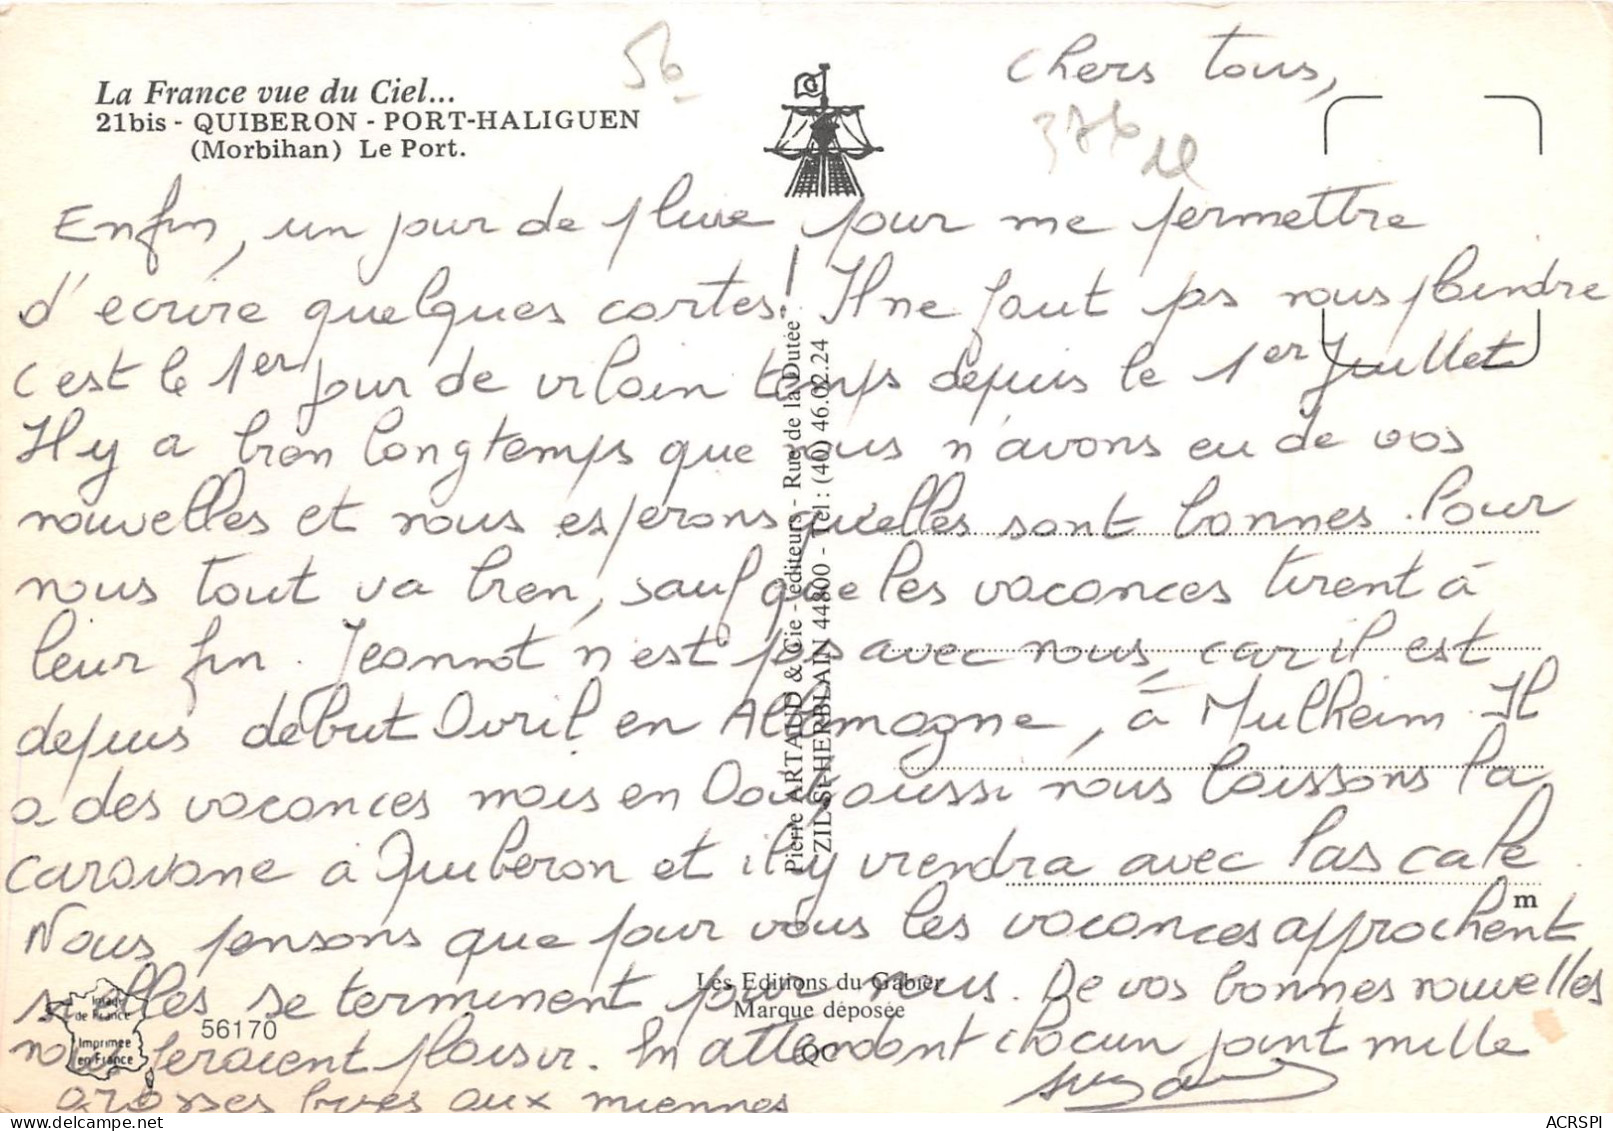 La France vue du Ciel...
21bis - QUIBERON - PORT-HALIGUEN
(Morbihan) Le Port.
56
Chers tous,
376
Enfin, un jour de pluie pour me permettre
d'ecrire quelques cartes. Il ne faut pas nous plaindre
c est le 1er jour de vilain temps depuis le 1er Juillet
Il y a bien longtemps que nous n'avons eu de vos
nouvelles et nous esperons qu'elles sont bonnes. Pour
nous tout va bien, sauf que les vacances tirent à
leur fin. Jeannot n'est pas avec nous, car il est
depuis début Avril en Allemagne, à Mulheim. Il
a des vacances mais en Août aussi nous laissons la
caravane à Quiberon et il y viendra avec Pascale
Nous pensons que pour vous les vacances approchent
si elles se terminent pour nous. De vos bonnes nouvelles
nous feraient plaisir. En attendant chacun joint mille
grosses bises aux miennes
Suzanne
Pierre ARTAUD & Cie - éditeurs - Rue de la Dutée
ZIL-ST-HERBLAIN 44800 - Tél : (40) 46.02.24
m
Les Editions du Gabier
Marque déposée
QC
Image
de France
Imprimée
en France
56170
ACRSPI